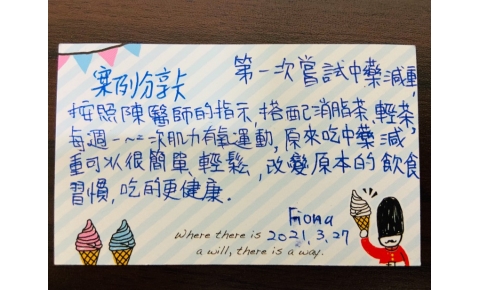 案例分享卡
第一次嘗試中藥減重,
按照陳醫師的指示,搭配消脂茶、輕茶,
每週一~二次肌力有氧運動,原來吃中藥減
重可以很簡單、輕鬆、改變原本的飲食
習慣,吃的更健康.
Fiona
2021.3.27
Where there is
a will, there is a way.